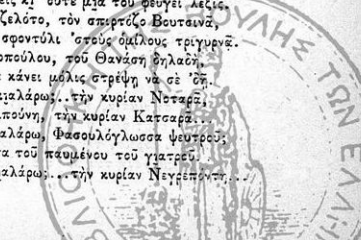 εις κι' οὔτε μια τοῦ φεύγει λέξις.
ζελότο, τὸν σπιρτόζο Βουτσινᾶ,
σφοντύλι 'στοὺς ὁμίλους τριγυρνᾷ.
οπούλου, τοῦ Θανάση δηλαδή,
α κάνει μόλις στρέψῃ νὰ σὲ 'δῇ.
αλάρω;..τὴν κυρίαν Νοταρᾶ,
πούνη, τὴν κυρίαν Κατσαρᾶ...
αλάρω, Φασουλόγλωσσα ψευτροῦ;
α τοῦ παυμένου τοῦ γιατροῦ.
αλάρω;..τὴν κυρίαν Νεγρεπόντη...
ΒΙΒΛΙΟ ΒΟΥΛΗΣ ΤΩΝ ΕΛΛΗΝ